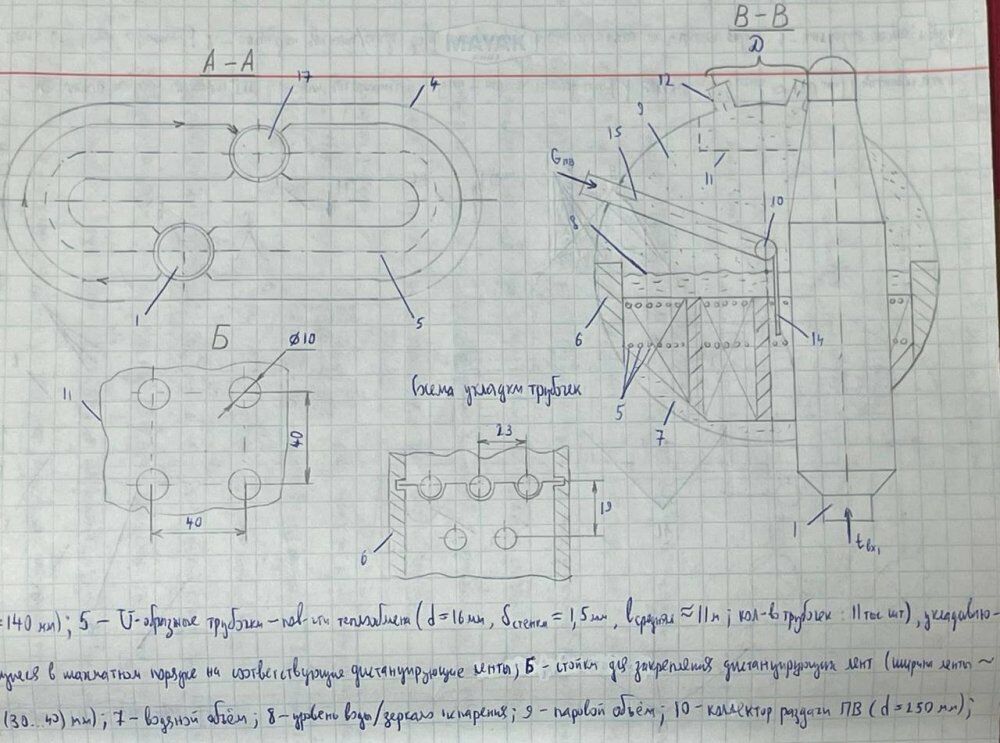 А-А
17
4
1
5
В-В
Д
12
9
15
Gпв
8
11
10
6
14
5
7
1
tвх₁
Б
ø10
11
40
40
Схема укладки трубчек
23
19
6
=140 мм); 5 - U-образные трубочки - пов-сти теплообмена (d=16мм, δстенки = 1,5мм, lсредняя ≈ 11м; кол-в трубчек: 11тыс шт), укладываю-
щиеся в шахматном порядке на соответствующие дистанцирующие ленты; Б - стойки для закрепления дистанцирующих лент (ширина ленты ~
(30...40) мм); 7 - водяной объём; 8 - уровень воды/зеркало испарения; 9 - паровой объём; 10 - коллектор раздачи ПВ (d=250 мм);